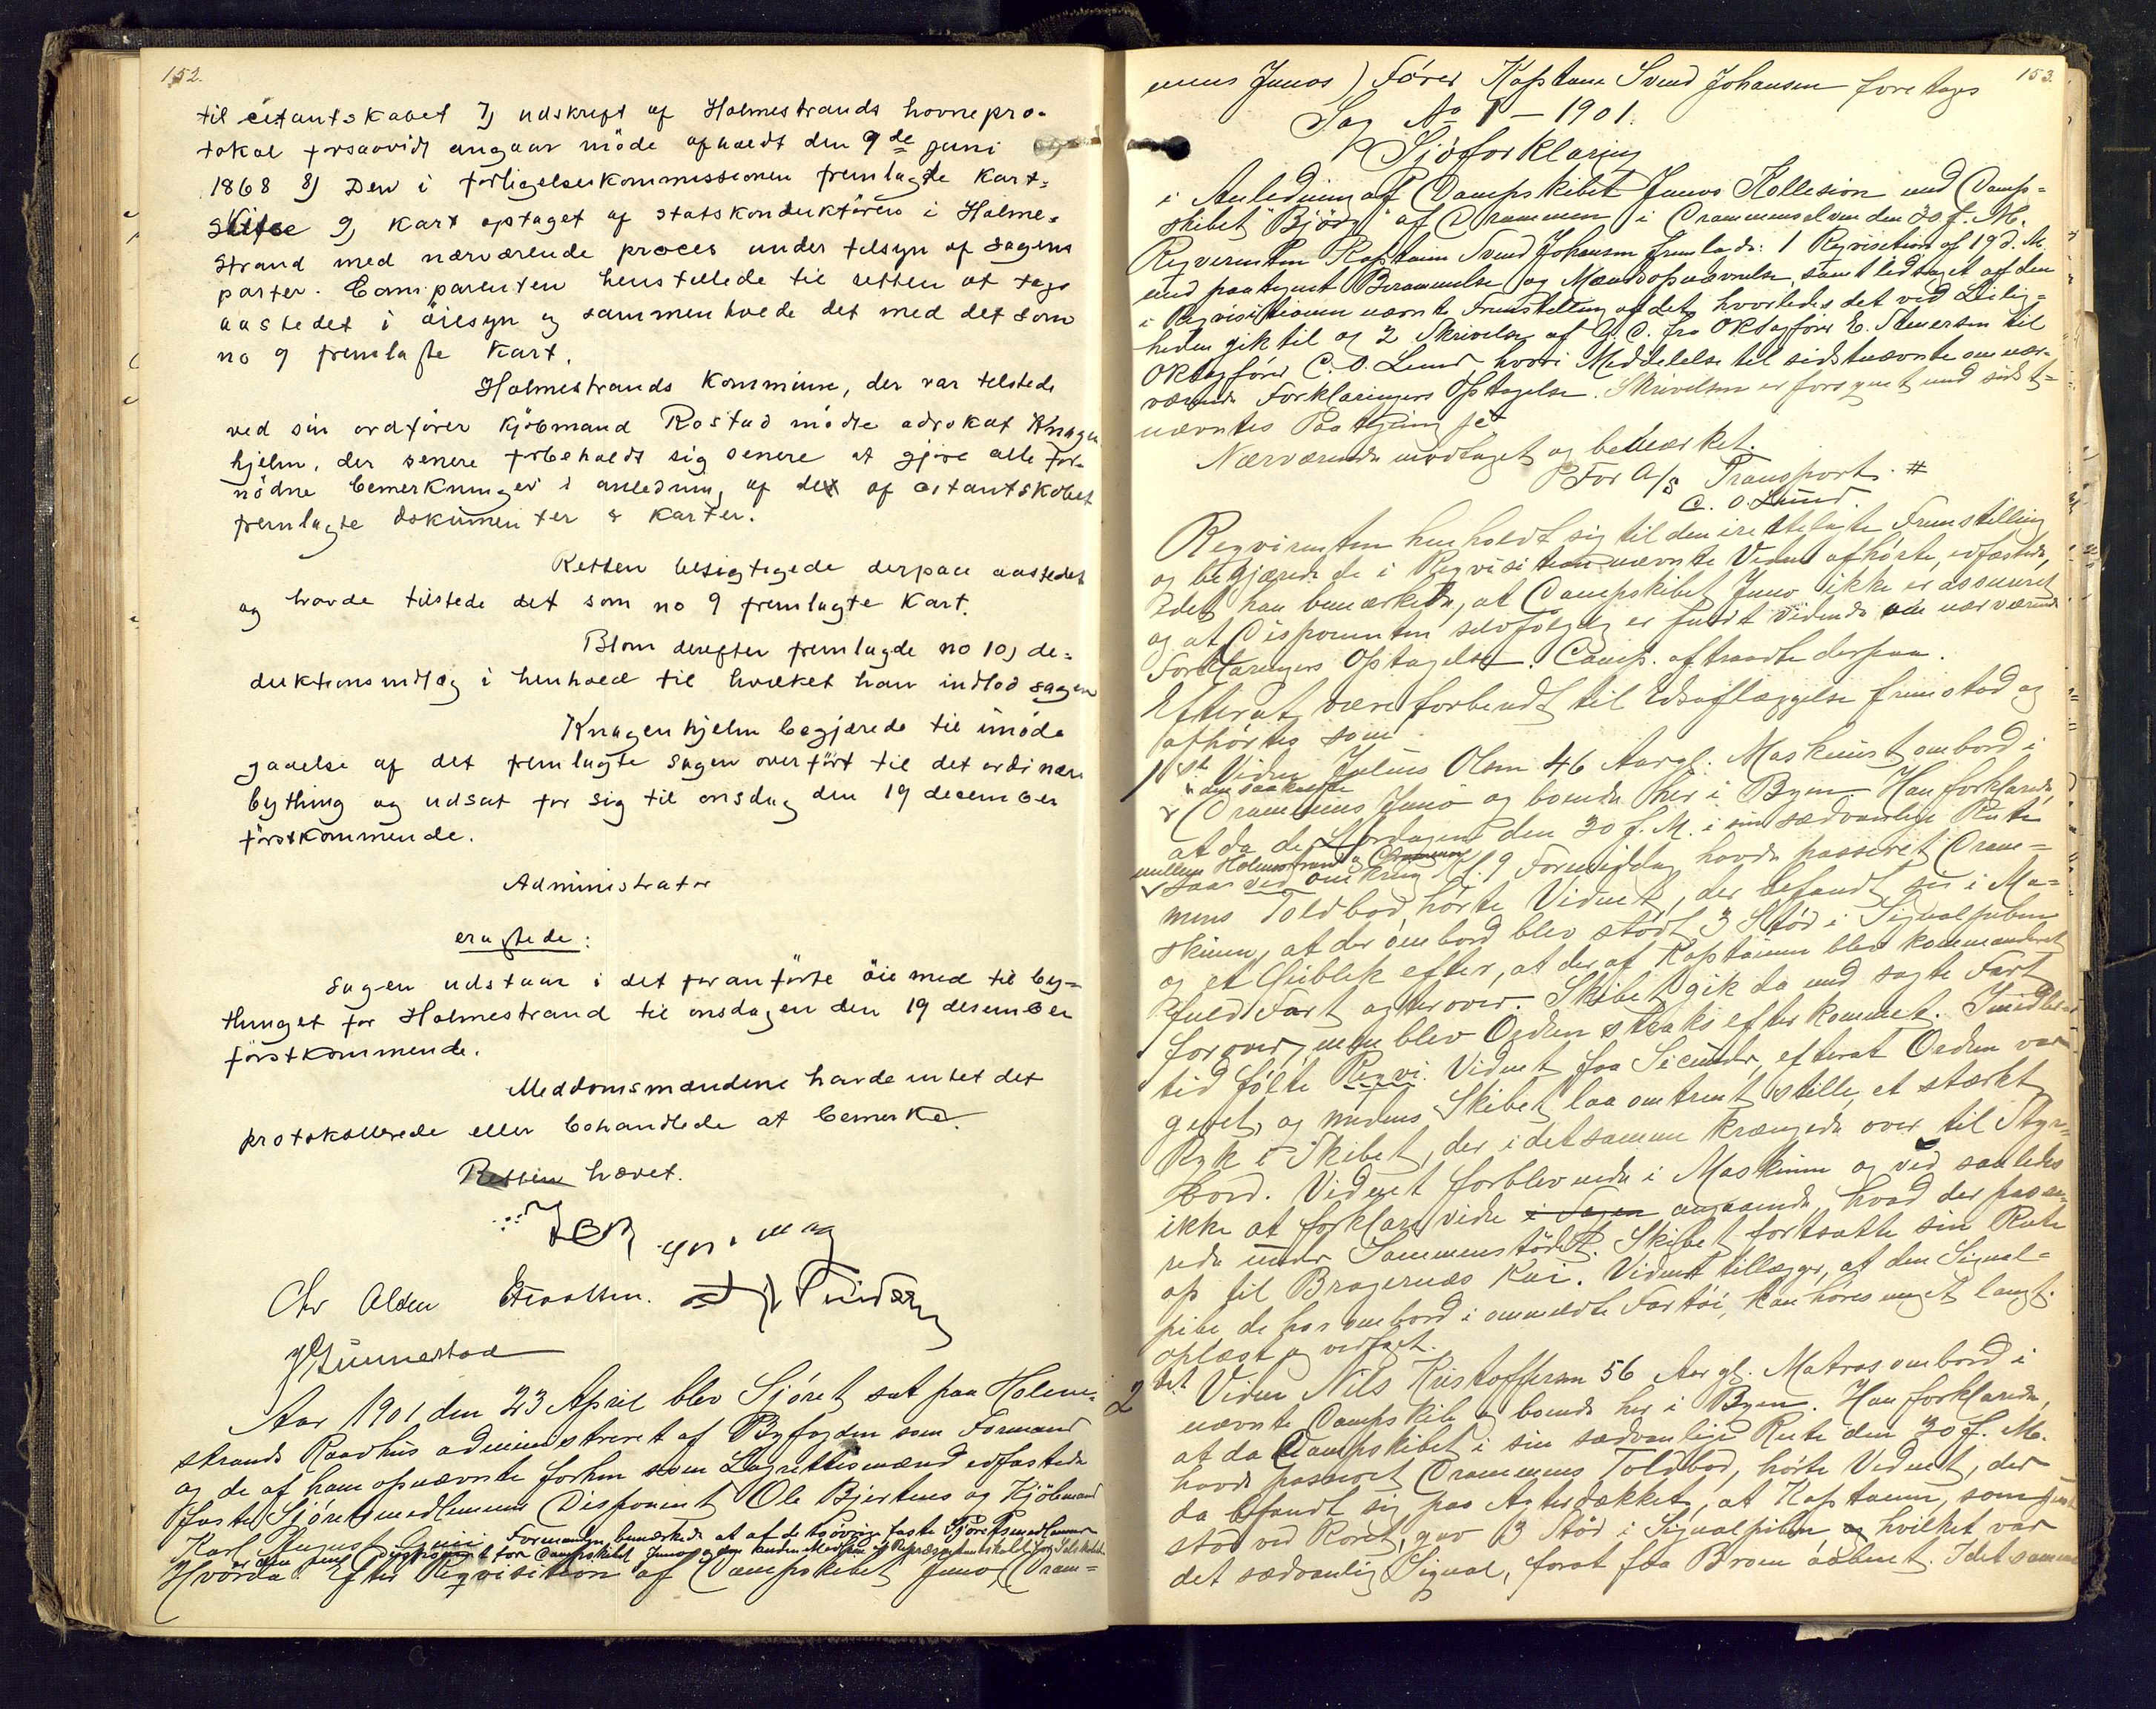 152.
til citantskabet 7) udskrift af Holmestrands havnepro-
tokol forsaavidt angaar möde afholdt den 9de juni
1868 8) Den i forligelseskommissionen fremlagte Kart-
skitse 9) Kart optaget af statskonduktören i Holme-
strand med nærværende proces under tilsyn af sagens
parter. Comparenten henstillede til retten at tage
aastedet i öiesyn og sammenholde det med det som
no 9 fremlagte Kart.
Holmestrands Kommune, der var tilstede
ved sin ordförer Kjöbmand Rostad mödte advokat Knagen
hjelm, der senere forbeholdt sig senere at gjöre alle for-
nödne bemerkninger i anledning af det af citantskabet
fremlagte dokumenter & karter.
Retten besigtigede derpaa aastedet
og havde tilstede det som no 9 fremlagte Kart.
Blom derefter fremlagde no 10) de-
duktionsindlæg i henhold til hvilket han indlod sagen
Knagenhjelm begjærede til imöde
gaaelse af det fremlagte sagen overfört til det ordinære
bything og udsat for sig til onsdag den 19 december
förstkommende.
Administrator
eragtede:
Sagen udstaar i det foranförte öiemed til by-
thinget for Holmestrand til onsdagen den 19 desember
förstkommende.
Meddomsmændene havde intet det
protokollerede eller behandlede at bemerke.
Retten hævet.
Chr Olden
Aar 1901 den 23 April blev Sjöret sat paa Holme-
strands Raadhus administreret af Byfogden som Formand
og de af ham opnævnte forhen som Lagrettesmænd edfæstede
faste Sjöretsmedlemmer Disponent Ole Bjertnes og Kjöbmand
Karl August Formanden bemærkede at af de tvövrige faste Sjöretsmedlemmer
er den ene Disponent for Dampskibet Juno og den anden Medlem af Repræsentantskabet
Hvorda Efter Reqvisition af Dampskibet Juno, (Dram-
153.
mens Junos) Förer Kaptain Svend Johansen foretages
Sag No 1 – 1901.
Sjöforklaring
i Anledning af Dampskibet Junos Kollision med Damp-
skibet "Björg" af Drammen i Drammenselven den 30 f. M.
Reqvirenten Kaptain Svend Johansen fremlagde: 1 Reqvisition af 19 d. M.
med paategnet Berammelse og Mændsopnævnelse, samt ledsaget af den
i Reqvisitionen nævnte Fremstilling af det, hvorledes det ved Leilig-
heden gik til og 2 Skrivelse af G. D. fra Oksagförer E. Stenersen til
Oksagförer C. O. Lund, hvori Meddelelse til sidstnævnte om nær-
værende Forklaringers Optagelse. Skrivelsen er forsynet med sidst-
nævntes Paategning
Nærværende modtaget og bemærket.
For A/S Transport. #
C. O. Lund
Reqvirenten henholdt sig til den irettelagte Fremstilling
og begjærede de i Reqvisitionen nævnte Vidner afhörte, edfæstede,
idet han bemærkede, at Dampskibet Juno ikke er assureret
og at Disponenten selvfölgelig er fuldt vidende om nærværende
Forklaringers Optagelse. Comp. aftraadte derpaa.
Efterat være forberedt til Edsaflæggelse fremstod og
afhörtes som
1ste Vidne Julius Olsen 46 Aar gl. Maskinist ombord i
den saakaldte
Drammens Juno og boende her i Byen. Han forklarede,
at da de Lördagen den 30 f. M. i sin sædvanlige Rute
mellem Holmestrand og Drammen
saaved omkring Kl. 9 Formiddag havde passeret Dram-
mens Toldbod, hörte Vidnet, der befandt sig i Ma-
skinen, at der ombord blev stödt 3 Stöd i Signalpiben
og et Öieblik efter, at der af Kaptainen blev kommanderet
fuld Fart agterover. Skibet gik da med sagte Fart
forover, men blev Orden straks efterkommet. Imidler-
tid fölte Reqvi. Vidnet faa Secunder, efterat Orden var
givet, og medens Skibet laa omtrent stille, et stærkt
Ryk i Skibet, der i det samme krængede over til Styr-
bord. Vidnet forblev nede i Maskinen og ved saaledes
ikke at forklare videre i Sagen angaaende, hvad der passe-
rede under Sammenstödet. Skibet fortsatte sin Rute
op til Bragernæs Kai. Vidnet tillægger, at den Signal-
pibe, de har ombord i ommældte Fartöi, kan höres meget langt.
oplæst og vedtaget.
2det Vidne Nils Kristoffersen 56 Aar gl. Matros ombord i
nævnte Dampskib og boende her i Byen. Han forklarede,
at da Dampskibet i sin sædvanlige Rute den 30 f. M.
havde passeret Drammens Toldbod, hörte Vidnet, der
da befandt sig paa Agterdækket, at Kaptainen, som
stod ved Roret, gav 3 Stöd i Signalpiben, og hvilket var
det sædvanlig Signal, forat faa Broen aabnet. I det samme